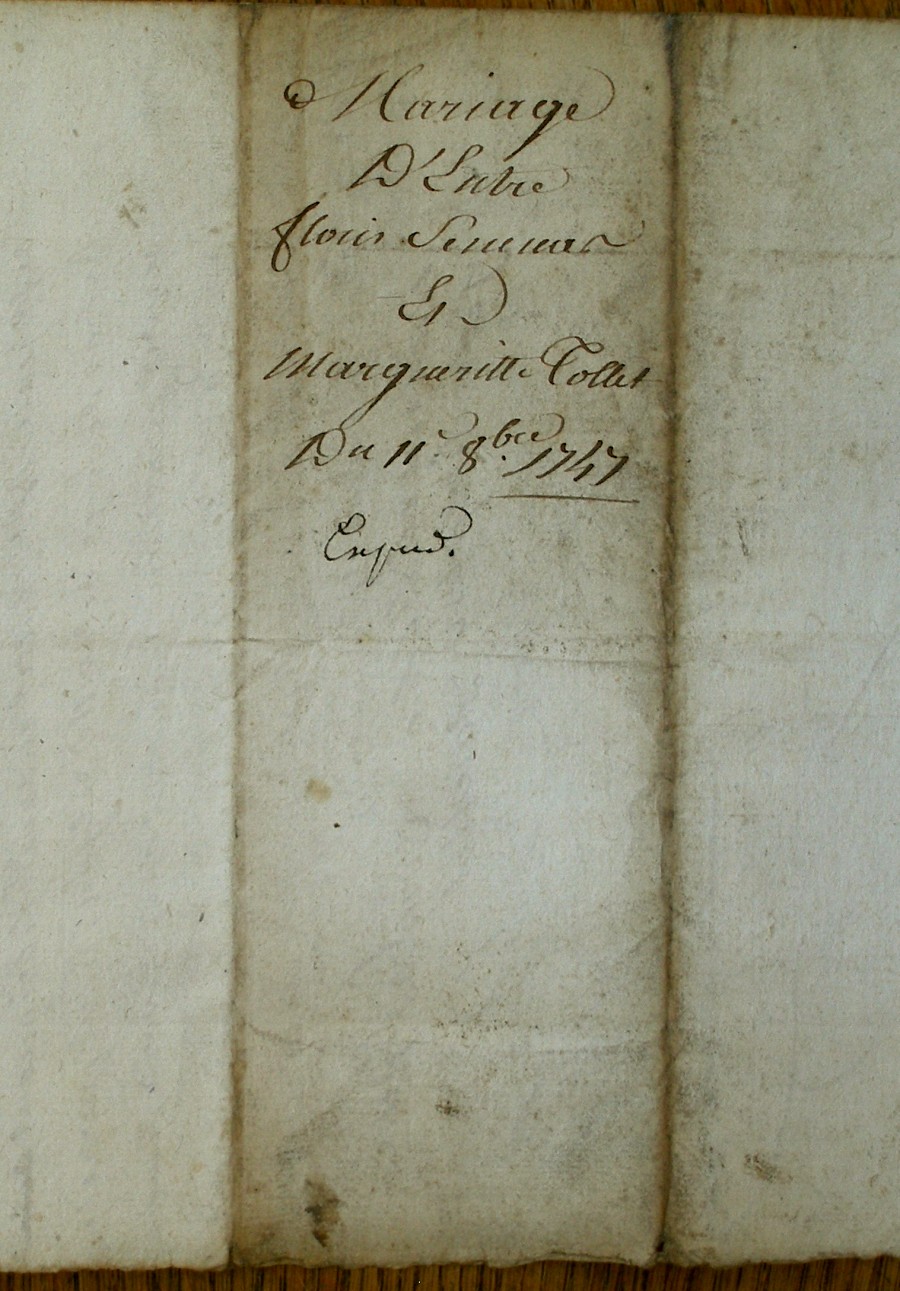 Mariage
D'Entre
flouis Semmar
Et
Margueritte Tollet
Du 11e 8bre 1747